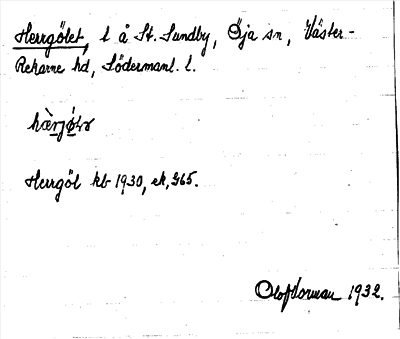 Herrgölet, l å St. Sundby, Öja sn, Väster-
Rekarne hd, Södermanl. l.
Herrgöl kb 1930, ek, 965.
Olof Norman 1932.